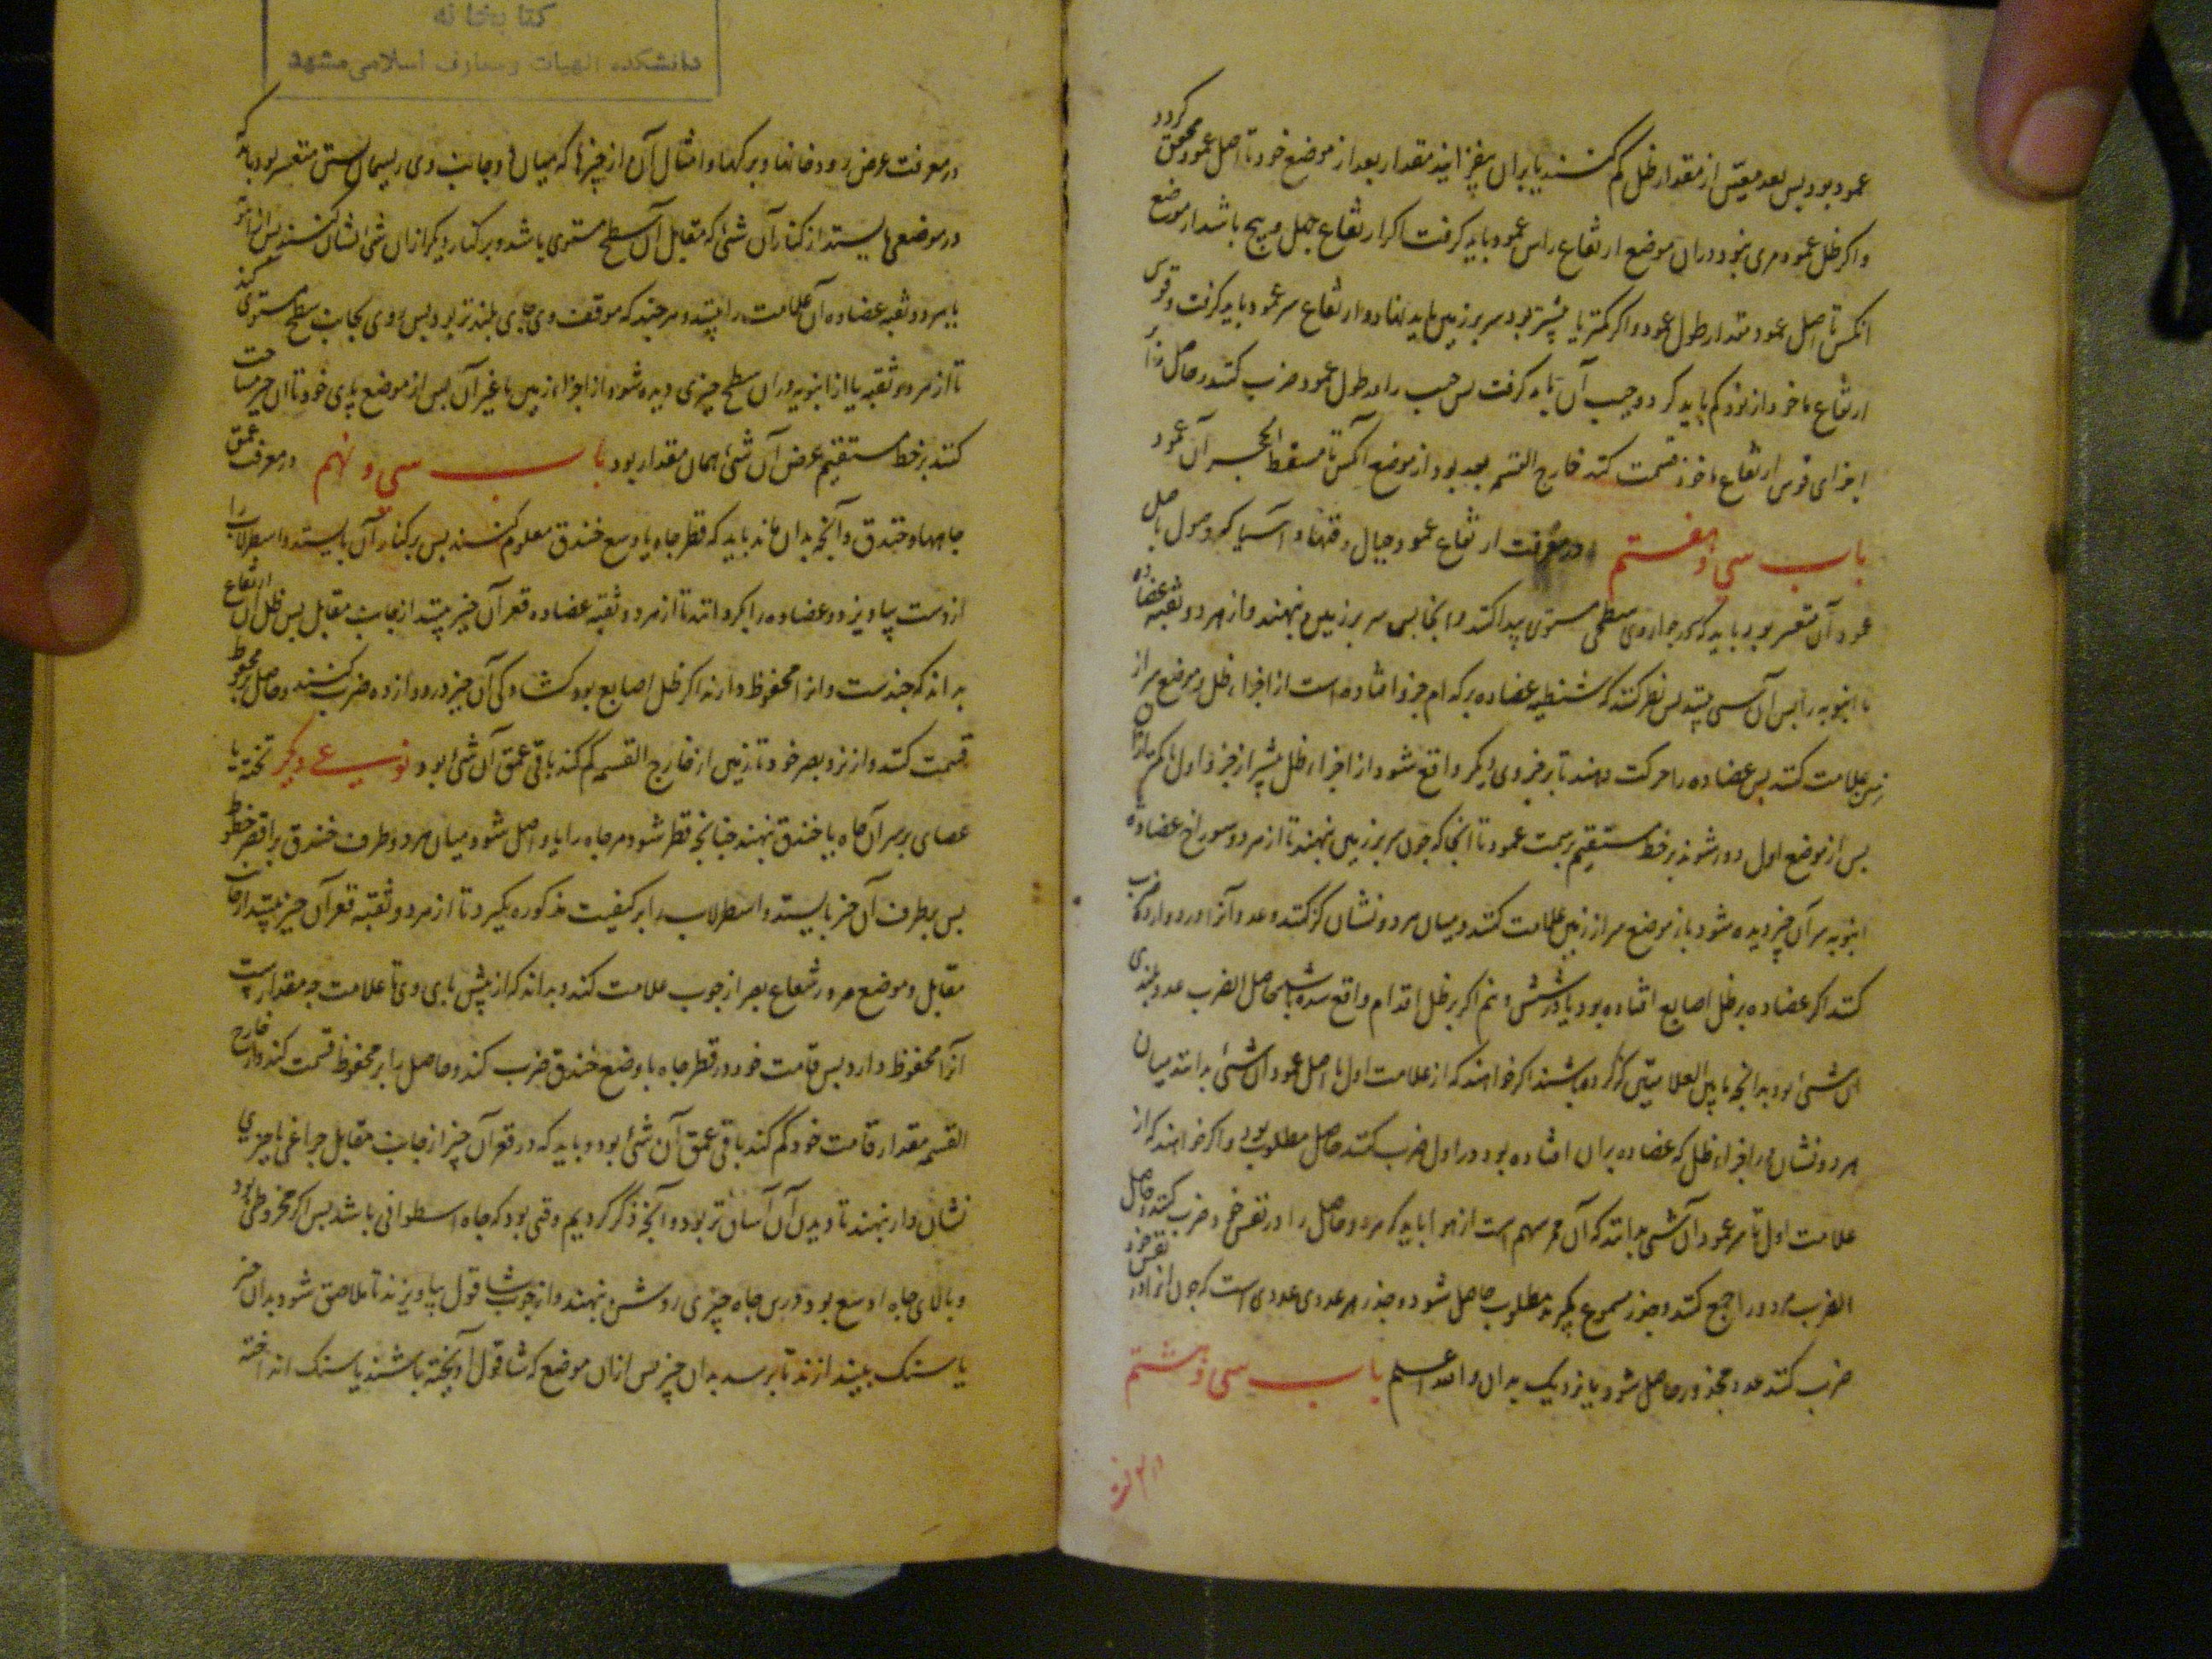 عمود بود پس بعد مقیس از مقدار ظل کم کنند یا بران بیفزایند مقدار بعد از موضع خود تا اصل عمود محقق کردد
واکر ظل عمود مری نبود دران موضع ارتفاع راس عمود باید کرفت اکر ارتفاع چهل و پنج باشد از موضع
انکس تا اصل عمود مقدار طول عمود واکر کمتر یا بیشتر بود سر بر زمین باید نهاد و ارتفاع سر عمود باید کرفت و قوس
ارتفاع ماخوذ از نود کم باید کرد و جیب آن باید کرفت پس جیب را در طول عمود ضرب کنند و حاصل را بر
اجزای قوس ارتفاع ماخوذ قسمت کنند خارج القسمه بعد بود از موضع آنکس تا مسقط الحجر آن عمود
باب سی و هفتم در معرفت ارتفاع عمود جبال و قلها و آنها که وصول باصل
عمود آن متعسر بود باید که در حوار وی سطحی مستوی پیدا کنند و انجا پس سر بر زمین نهند و از هر دو ثقبه عضاده
یا انبوبه راس آن شی بیند پس نظر کنند که شظیه عضاده بر کدام جزو افتاده است از اجزاء ظل و موضع سر از
زمین علامت کنند پس عضاده را حرکت دهند تا بر جزوی دیکر واقع شود از اجزاء ظل بیشتر از جزو اول یا کم ازان
پس از موضع اول دور شوند بر خط مستقیم بر سمت عمود تا انجا که چون سر بر زمین نهند تا از هر دو سوراخ عضاده یا
انبوبه سر آن چیز دیده شود باز موضع سر از زمین علامت کنند و میان هر دو نشان کز کنند و عدد آنرا در دوازده ضرب
کنند اکر عضاده بر ظل اصابع افتاده بود یا در شش و نیم اکر بر ظل اقدام واقع شده باشد حاصل الضرب عدد بلندی
ان شی بود بدانچه ما بین العلامتین کز کرده باشند اکر خواهند که از علامت اول تا اصل عمود ان شی بدانند میان
هر دو نشان را در اجزاء ظل که عضاده بران افتاده بود در اول ضرب کنند حاصل مطلوب بود واکر خواهند که از
علامت اول تا سر عمود آن شی بدانند که آن ممر سهم است از هوا باید که هر دو حاصل را در نفس خود ضرب کنند و حاصل
الضرب هر دو را جمع کنند و جذر مجموع بکیرند مطلوب حاصل شود و جذر هر عددی عددی است که چون انرا در نفس خود
ضرب کنند عدد مجذور حاصل شود یا نزدیک بدان والله اعلم باب سی و هشتم
کتابخانه
دانشکده الهیات و معارف اسلامی مشهد
در معرفت عرض رودخانها و برکها و امثال آن از چیزها که میان وی و جانب وی ریسمان بستن متعسر بود باید که
در موضعی بایستد از کنار آن شی که مقابل آن سطح مستوی باشد و بر کنار دیکر ازان شی نشان کنند پس از انبوبه
یا هر دو ثقبه عضاده آن علامت را بیند و هر چند که موقف وی جای بلندتر بود پس روی بجانب سطح مستوی کند
تا از هر دو ثقبه یا از انبوبه دران سطح چیزی دیده شود از اجزاء زمین یا غیر آن پس از موضع پای خود تا ان چیز مساحت
کنند بر خط مستقیم عرض آن شی همان مقدار بود باب سی و نهم در معرفت عمق
چاهها و خندق و آنچه بدان ماند باید که قطر چاه یا وسع خندق معلوم کنند پس بر کنار آن بایستد و اسطرلاب را
از دست بیاویزد و عضاده را بکردانند تا از هر دو ثقبه عضاده قعر آن چیز بیند از جانب مقابل پس ظل ان ارتفاع
بداند که چندست وانرا محفوظ دارند اکر ظل اصابع بود کشادکی آن چیز در دوازده ضرب کنند و حاصل بر محفوظ
قسمت کنند و از نزد بصر خود تا زمین از خارج القسمه کم کند باقی عمق آن شی بود نوعی دیکر تخته یا
عصای بر سر آن چاه یا خندق نهند چنانچه قطر شود مر چاه را یا واصل شود میان هر دو طرف خندق بر اقصر خطوط
پس بطرف آن چیز بایستد و اسطرلاب را بر کیفیت مذکوره بکیرد تا از هر دو ثقبه قعر آن چیز بیند از جانب
مقابل و موضع مرور شعاع بصر از چوب علامت کند و بداند که از پیش پای وی تا علامت چه مقدارست
آنرا محفوظ دارد پس قامت خود در قطر چاه یا وضع خندق ضرب کند و حاصل را بر محفوظ قسمت کند و از خارج
القسمه مقدار قامت خود کم کند باقی عمق آن شی بود و باید که در قعر آن چیز از جانب مقابل چراغی یا چیزی
نشان وار بنهند تا دیدن آن آسان تر بود و آنچه ذکر کردیم وقتی بود که چاه اسطوانی باشد پس اکر مخروطی بود
و بالای چاه اوسع بود در بن چاه چیزی روشن بنهند و از چوب شاقول بیاویزند تا ملاصق شود بدان چیز
یا سنک بیندازند تا برسد بدان چیز پس ازان موضع که شاقول آویخته باشند یا سنک انداخته